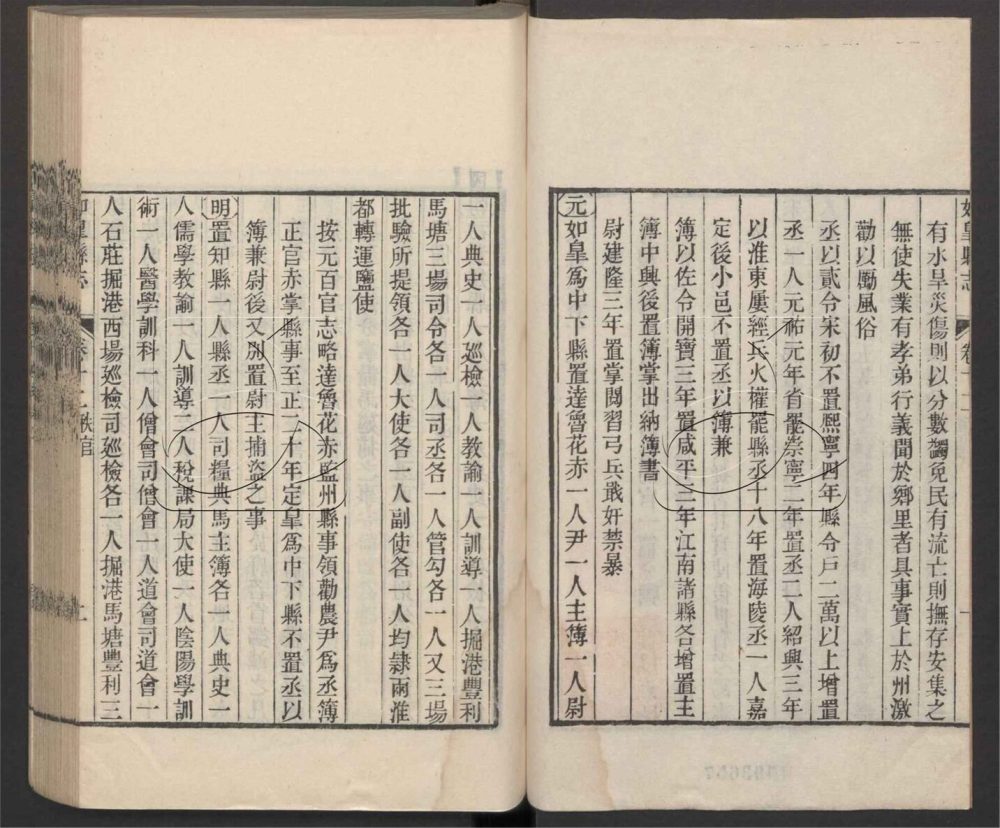 如皋縣志 卷十二
有水旱災傷則以分數蠲免民有流亡則撫存安集之
無使失業有孝弟行義聞於鄉里者具事實上於州激
勸以勵風俗
丞以貳令宋初不置熙寧四年縣令戶二萬以上增置
丞一人元祐元年省罷崇寧二年置丞二人紹興三年
以淮東屢經兵火權罷縣丞十八年置海陵丞一人嘉
定後小邑不置丞以簿兼
簿以佐令開寶三年置咸平三年江南諸縣各增置主
簿中興後置簿掌出納簿書
尉建隆三年置掌閱習弓兵戢奸禁暴
元如皋爲中下縣置達魯花赤一人尹一人主簿一人尉
一人典史一人巡檢一人教諭一人訓導一人掘港豐利
馬塘三場司令各一人司丞各一人管勾各一人又三場
批驗所提領各一人大使各一人副使各一人均隸兩淮
都轉運鹽使
按元百官志略達魯花赤監州縣事領勸農尹爲丞簿
正官赤掌縣事至正二十年定皋爲中下縣不置丞以
簿兼尉後又別置尉主捕盜之事
明置知縣一人縣丞一人司糧典馬主簿各一人典史一
人儒學教諭一人訓導二人稅課局大使一人陰陽學訓
術一人醫學訓科一人僧會司僧會一人道會司道會一
人石莊掘港西場巡檢司巡檢各一人掘港馬塘豐利三
如皋縣志 卷十二 秩官